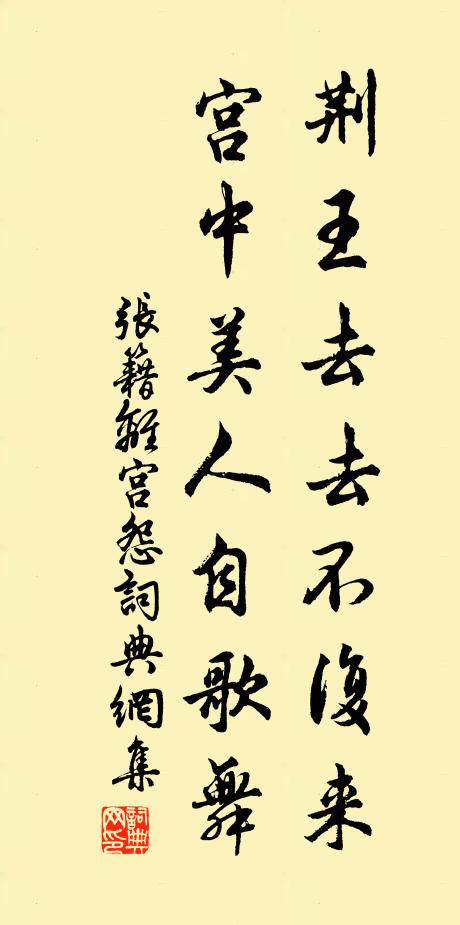 荆王去去不復来
宫中美人自歌舞
張籍離宫怨詞典網集
詞典网印